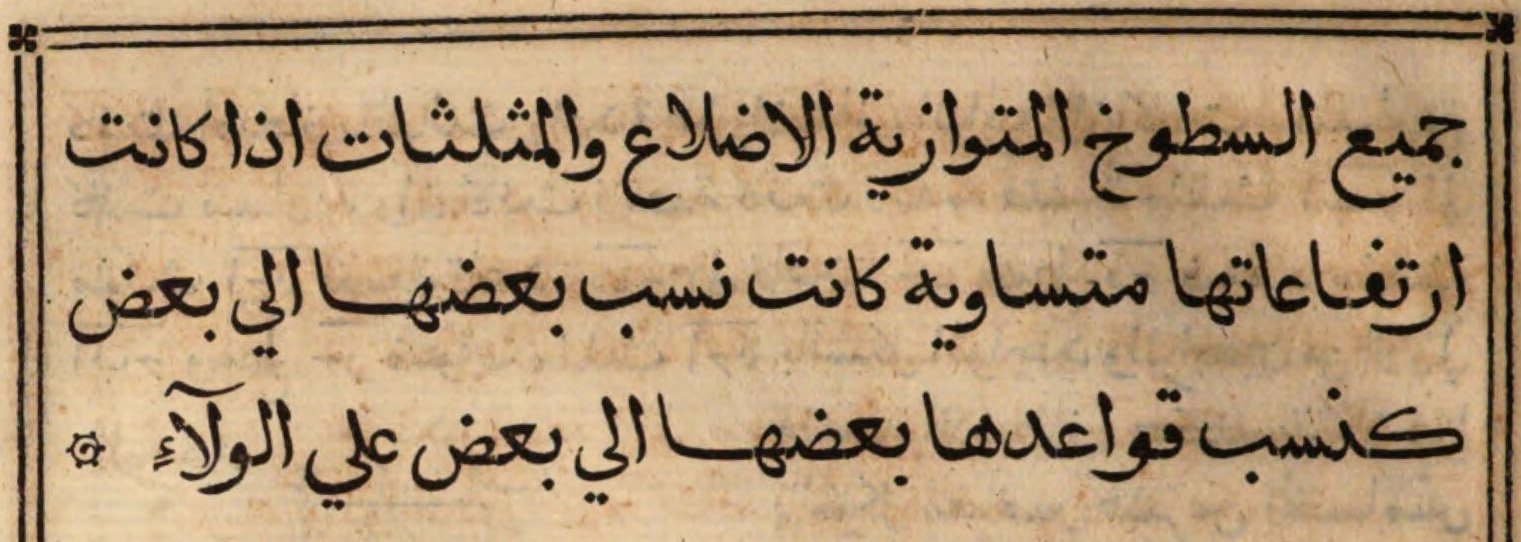 جميع السطوخ المتوازية الاضلاع والمثلثات اذا كانت
ارتفاعاتها متساوية كانت نسب بعضها الي بعض
كنسب قواعدها بعضها الي بعض علي الولآءِ ۞